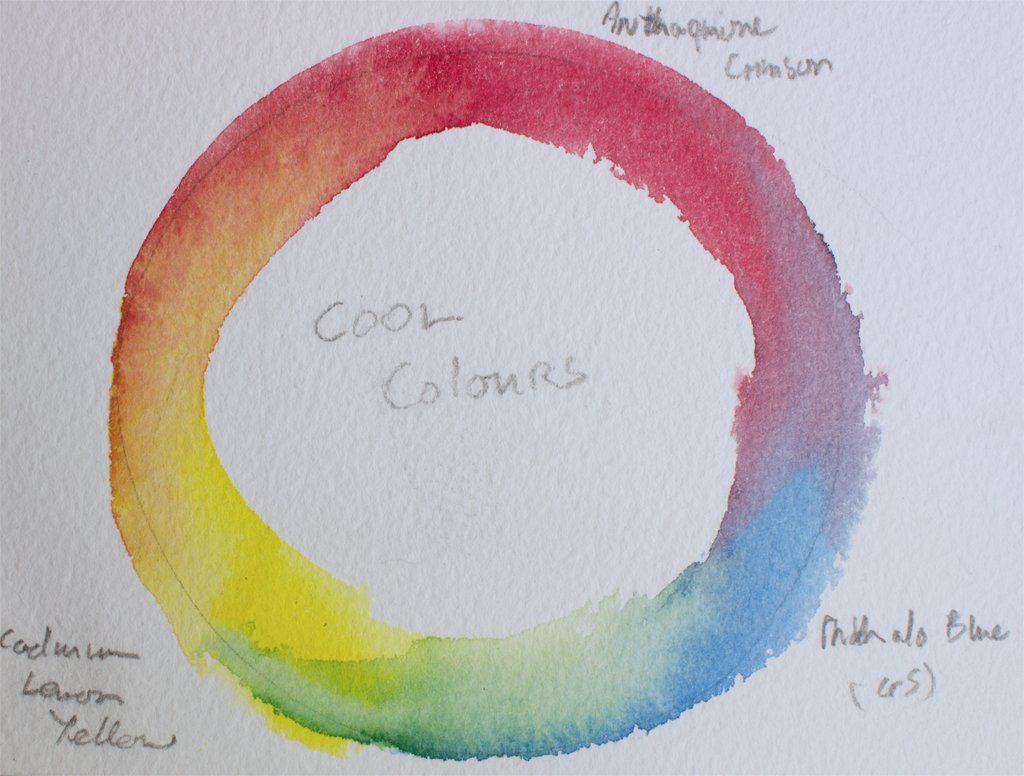 Anthraquinone
Crimson
COOL
ColouRs
Cadmium
Lemon
Yellow
Phthalo Blue
(GS)